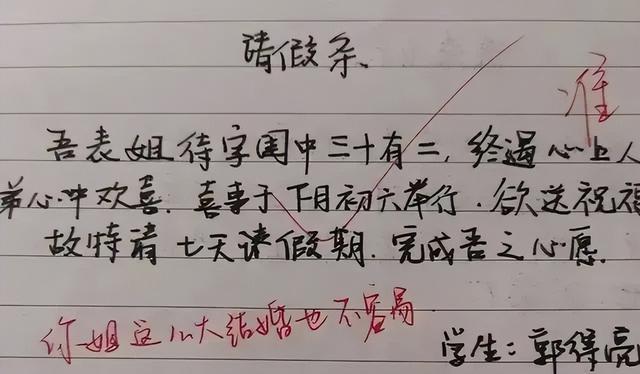 请假条
准
吾表姐待字闺中三十有二，终遇心上人
弟心中欢喜．喜事于下月初六举行．欲送祝福
故特请七天请假期．完成吾之心愿．
你姐这么大结婚也不容易
学生：郭得亮